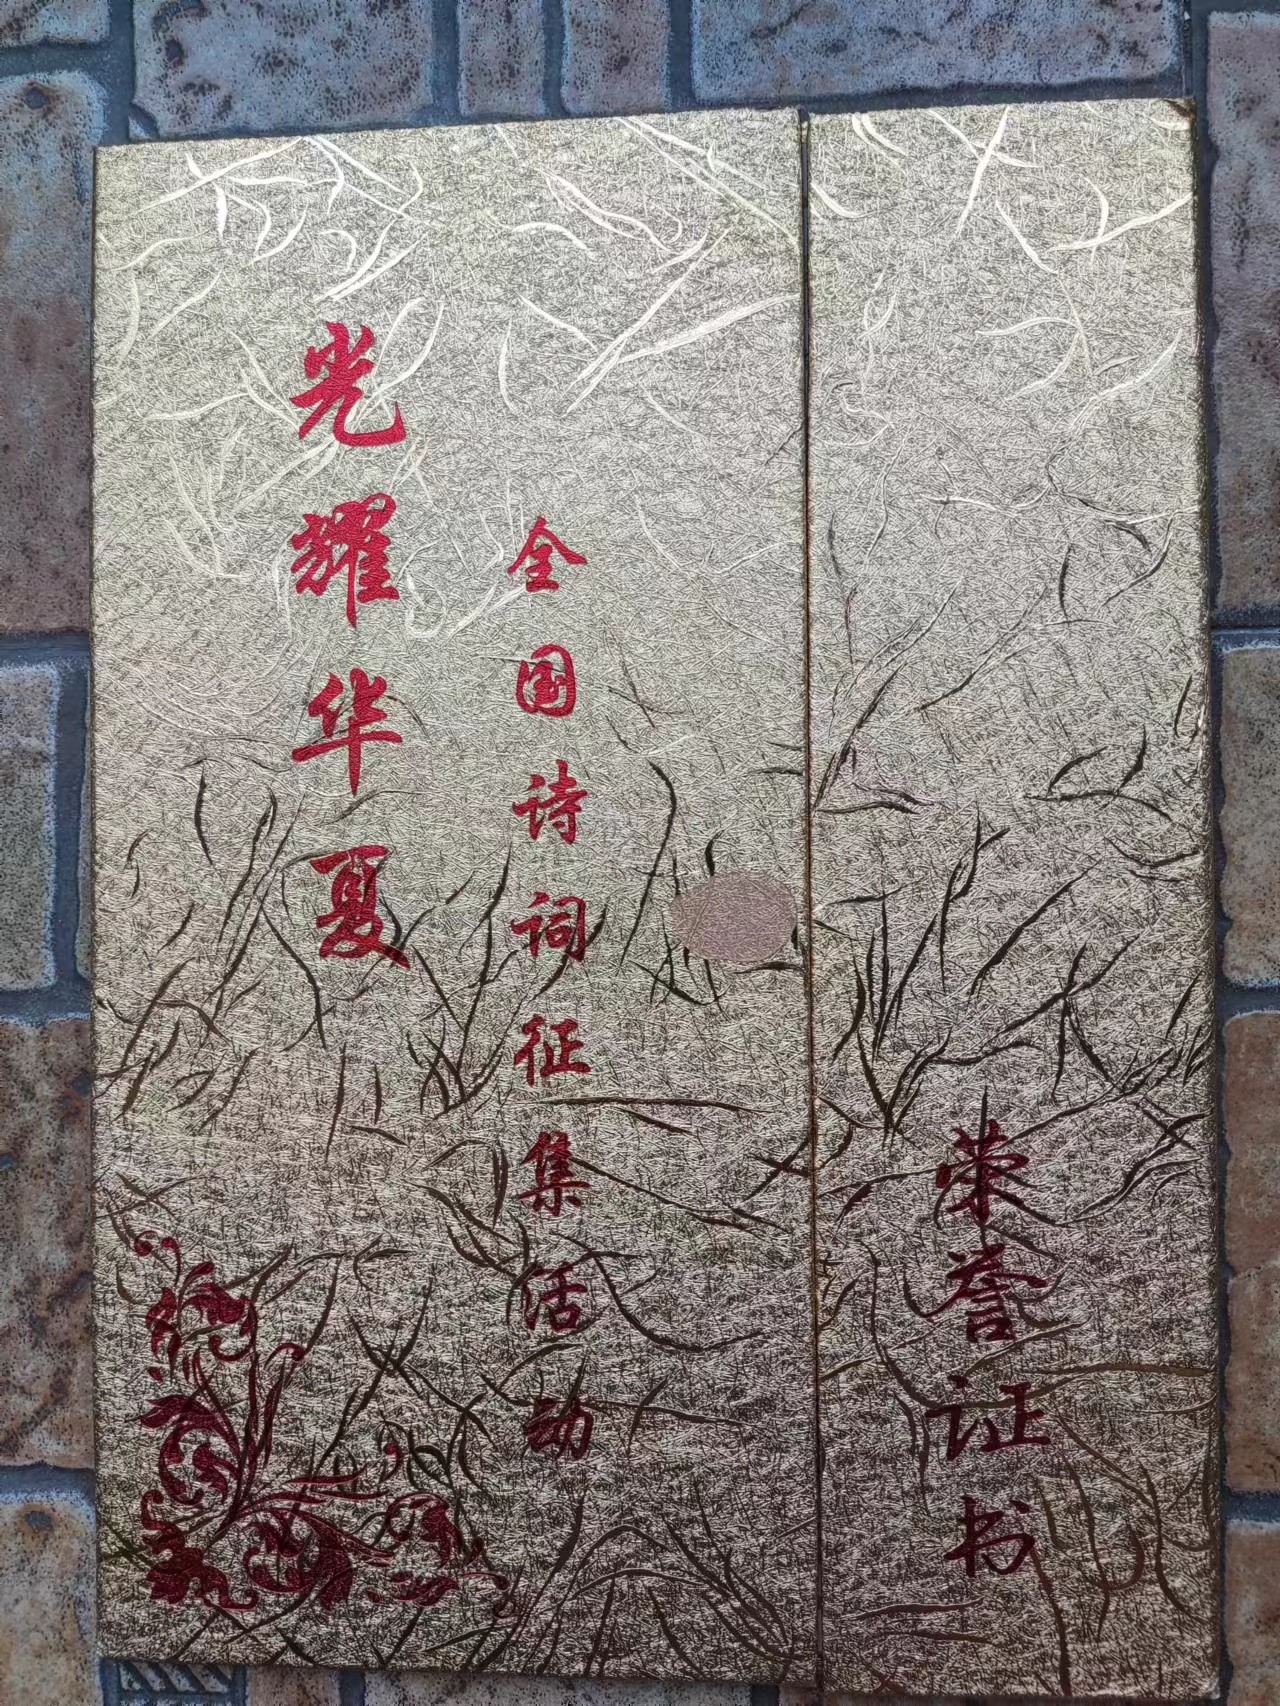 光耀华夏
全国诗词征集活动
荣誉证书